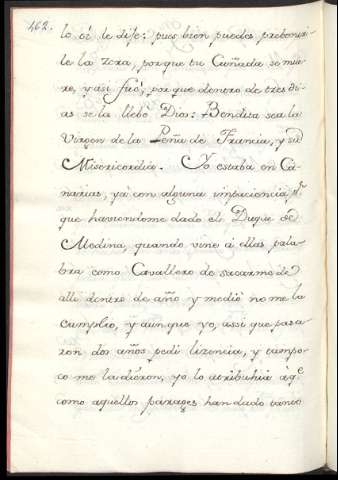 462.
lo oí le dije: pues bien puedes prebenir
le la zera, porque tu Cuñada se mue
re, y así fué, porque dentro de tres di
as se la llebó Dios: Bendita sea la
Virgen de la Peña de Francia, y su
Misericordia. Yo estaba en Ca
narias, ya con alguna impaciencia pr.
que haviendome dado el Duque de
Medina, quando vine á ellas pala
bra como Cavallero de sacarme de
allí dentro de año y medio no me la
cumplio, y aunque yo, assi que pasa
ron dos años pedi lizencia, y tampo
co me la diéron, yo lo atribuhia á qe.
como aquellos parages han dado tanto